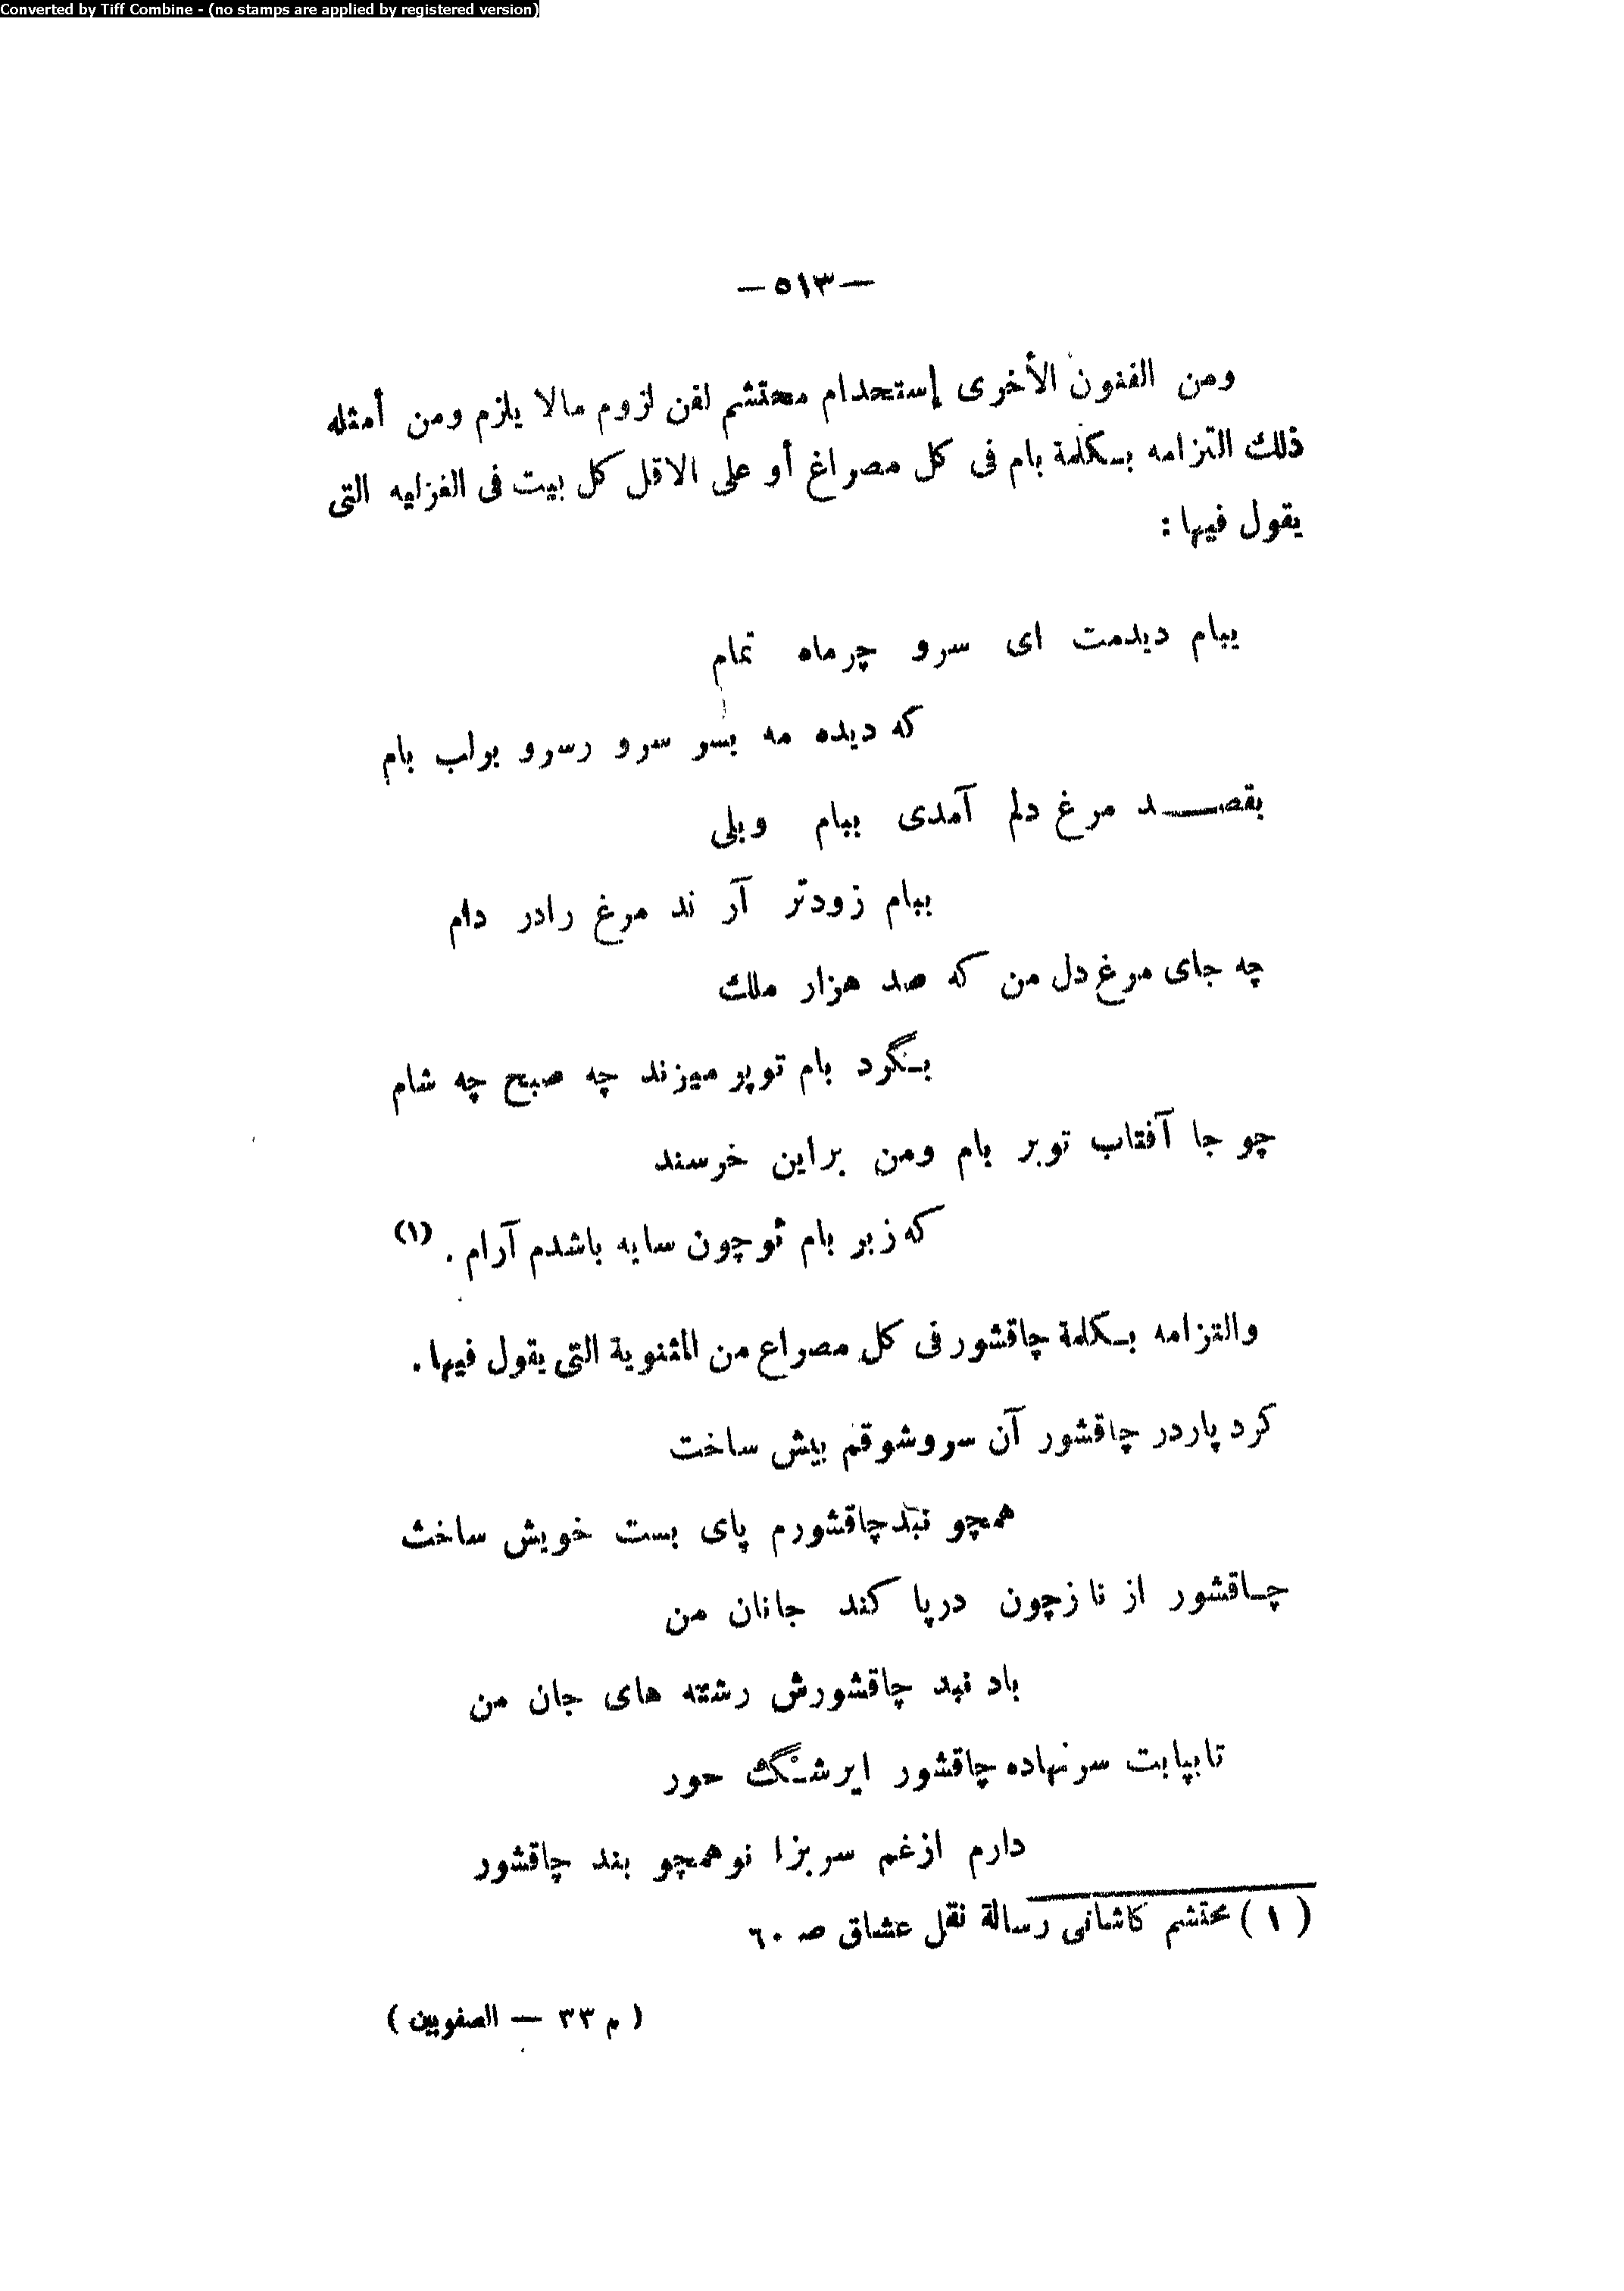 Converted by Tiff Combine - (no stamps are applied by registered version)
— ٥١٣ —
ومن الفنون الأخرى إستحدام محتشم لفن لزوم مالا يلزم ومن أمثله
ذلك التزامه بكلمة بام فى كل مصراغ أو على الاقل كل بيت فى الغزليه التى
يقول فيها :
ببام ديدمت اى سرو چرماه تمام
كه ديده مه بسر سرو رسرو بولب بام
بقصد مرغ دلم آمدى ببام وبلى
ببام زودتر آر ند مرغ رادر دام
چه جاى مرغ دل من كه صد هزار ملك
بگرد بام توپر ميزند چه صبح چه شام
چو جا آفتاب توبر بام ومن براين خرسند
كه زبر بام توچون سايه باشدم آرام . (١)
والتزامه بكلمة چاقشور فى كل مصراع من المثنوية التى يقول فيها .
كرد پاردر چاقشور آن سروشوقم بيش ساخت
همچو نبد چاقشورم پاى بست خويش ساخث
چاقشور از نازچون درپا كند جانان من
باد نبد چاقشورش رشته هاى جان من
تابپابت سرنهاده چاقشور ايرشنگ حور
دارم ازغم سر بزا نو همچو بند چاقشور
( ١ ) محتشم كاشانى رسالة نقل عشاق صـ ٦٠
( م ٣٣ — الصفويين )